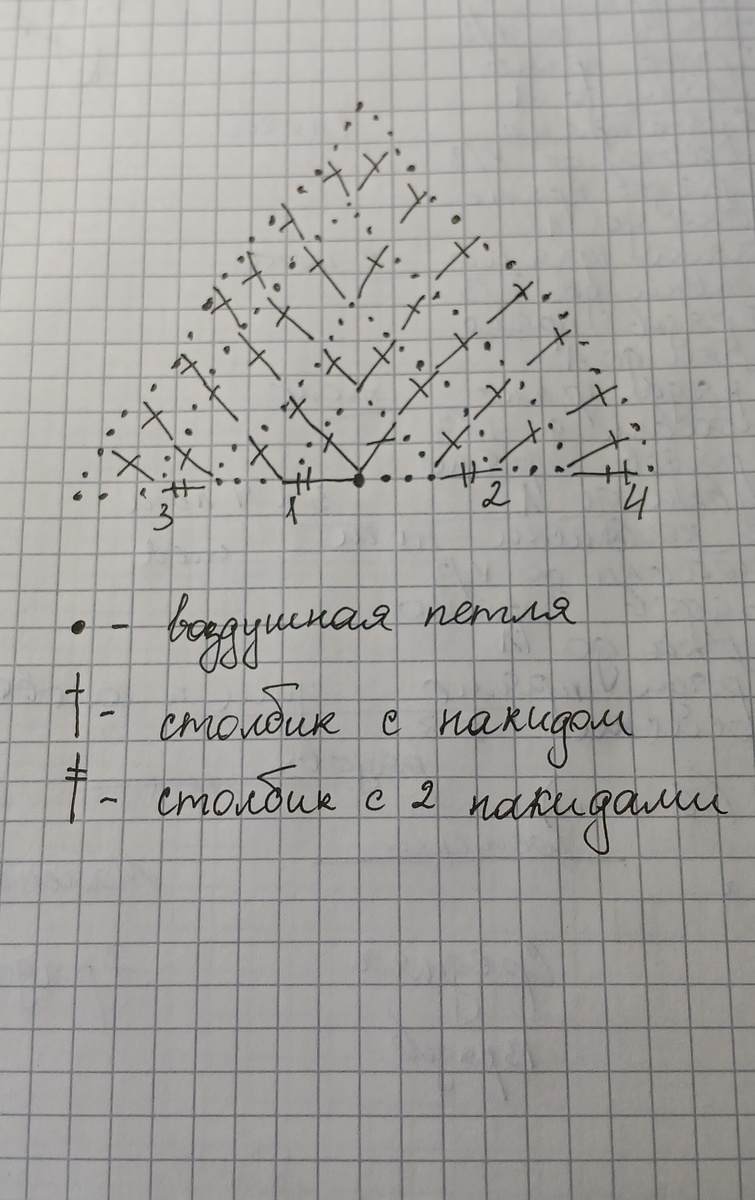 3 1 2 4
• - воздушная петля
† - столбик с накидом
‡ - столбик с 2 накидами